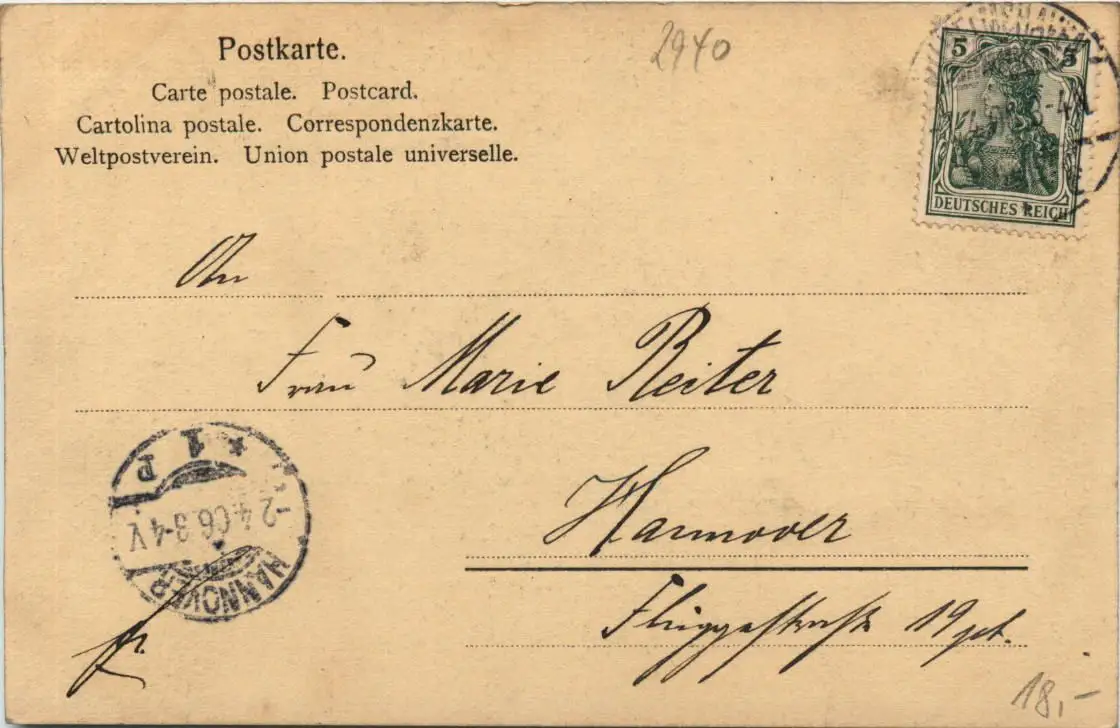 Postkarte.
Carte postale. Postcard.
Cartolina postale. Correspondenzkarte.
Weltpostverein. Union postale universelle.
2940
5 5
DEUTSCHES REICH
An
Frau Marie Reiter
Hannover
Flüggestraße 19 pt.
* 1 P
-2.4.06.3-4V
HANNOVER
fr.
18,-